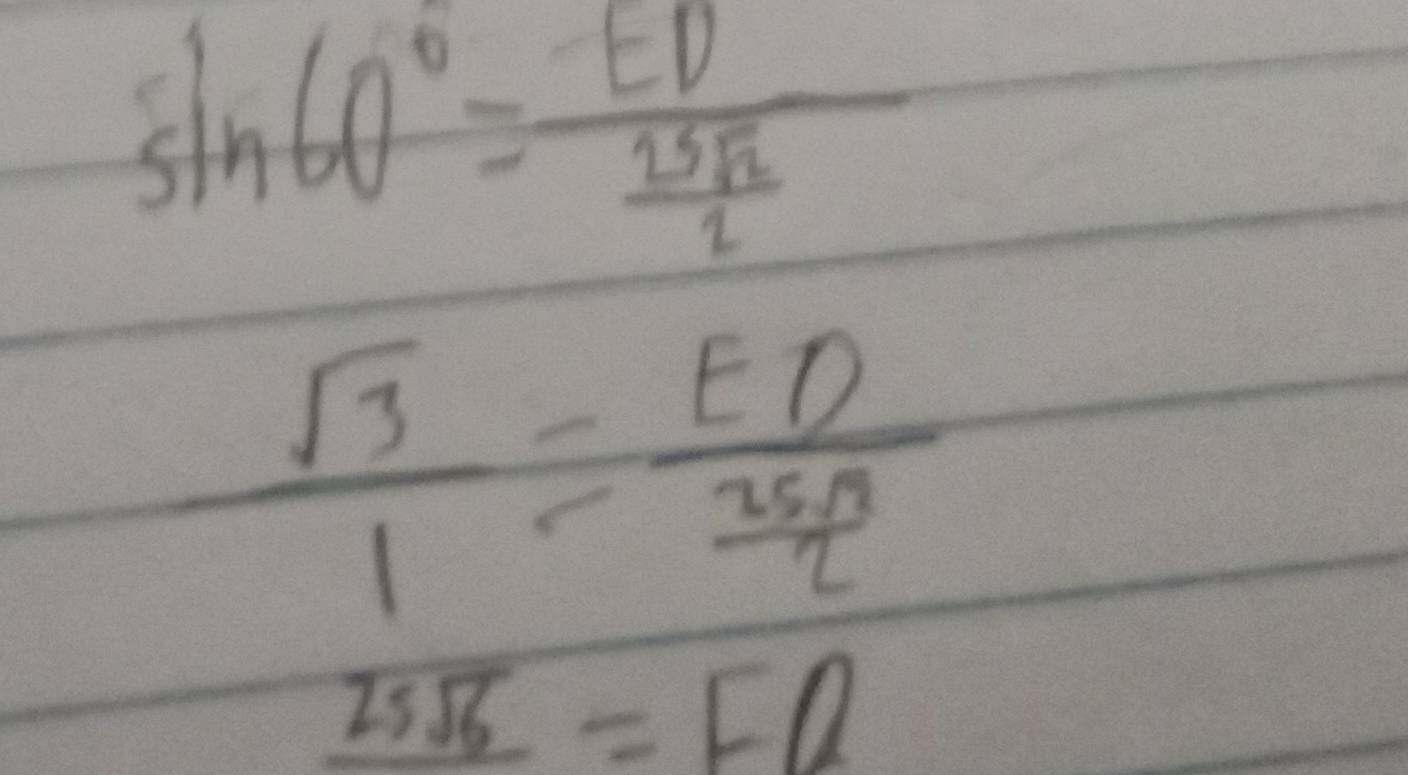 sin60° = ED / (25√2 / 2)
√3 / 1 = ED / (25√2 / 2)
25√6 = ED